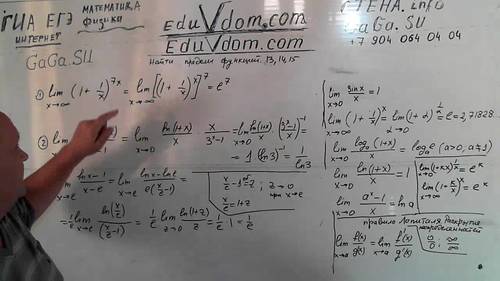 ГИА ЕГЭ
МАТЕМАТИКА
физика
ИНТЕРНЕТ
GaGa.SU
EduVdom.com
EduVdom.com
Найти пределы функций. 13,14,15
СТЕНА.info
GaGa.SU
+7 904 064 04 04
① lim x→∞ (1+1/x)^7x = lim x→∞ [(1+1/x)^x]^7 = e^7
② lim = lim x→0 ln(1+x)/x · x/(3^x-1) = lim x→0 ln(1+x)/x · ((3^x-1)/x)^-1 =
= 1·(ln3)^-1 = 1/ln3
lim x→e (lnx-1)/(x-e) = lim x→e (lnx-lne)/(e(x/e-1))
x/e-1=z; z→0
x/e=1+z при x→e
= 1/e lim x→e ln(x/e)/(x/e-1) = 1/e lim z→0 ln(1+z)/z = 1/e·1 = 1/e
lim x→0 sinx/x = 1
lim x→∞ (1+1/x)^x = lim α→0 (1+α)^1/α = e = 2,71828
lim x→0 log a(1+x)/x = log a e (a>0; a≠1)
lim x→0 ln(1+x)/x = 1
lim x→0 (1+kx)^1/x = e^k
lim x→∞ (1+k/x)^x = e^k
lim x→0 (a^x-1)/x = ln a
правило Лопиталя. Раскрытие
неопределенностей
lim x→a f(x)/g(x) = lim x→a f'(x)/g'(x)
0/0; ∞/∞